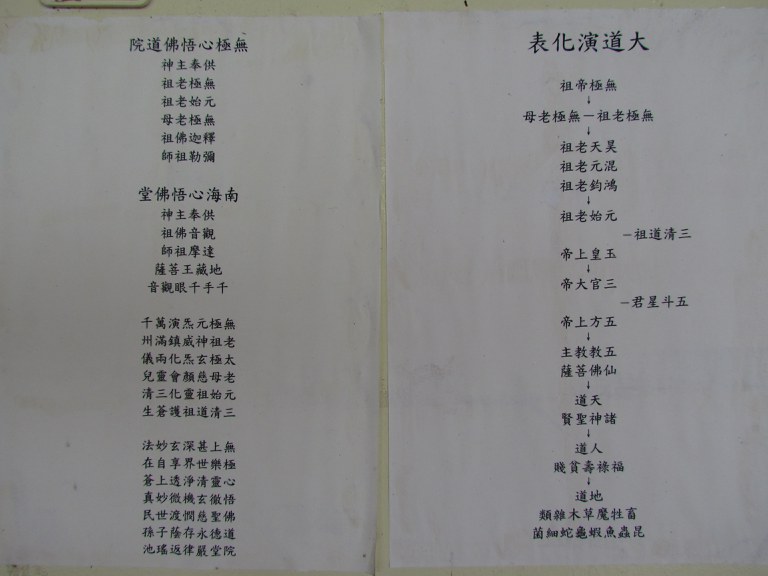 大道演化表
無極帝祖
↓
無極老祖－無極老母
↓
昊天老祖
混元老祖
鴻鈞老祖
↓
元始老祖
三清道祖－
玉皇上帝
↓
三官大帝
五斗星君－
五方上帝
↓
五教教主
仙佛菩薩
↓
天道
諸神聖賢
↓
人道
福祿壽貧賤
↓
地道
畜牲魔草木雜類
昆蟲魚蝦龜蛇細菌
無極心悟佛道院
供奉主神
無極老祖
元始老祖
無極老母
釋迦佛祖
彌勒祖師
南海心悟佛堂
供奉主神
觀音佛祖
達摩祖師
地藏王菩薩
千手千眼觀音
無極元炁演萬千
老祖神威鎮滿州
太極玄炁化兩儀
老母慈顏會靈兒
元始祖靈化三清
三清道祖護蒼生
無上甚深玄妙法
極樂世界享自在
心靈清淨透上蒼
悟徹玄機微妙真
佛聖慈憫渡世民
道德永存蔭子孫
院堂嚴律返瑤池